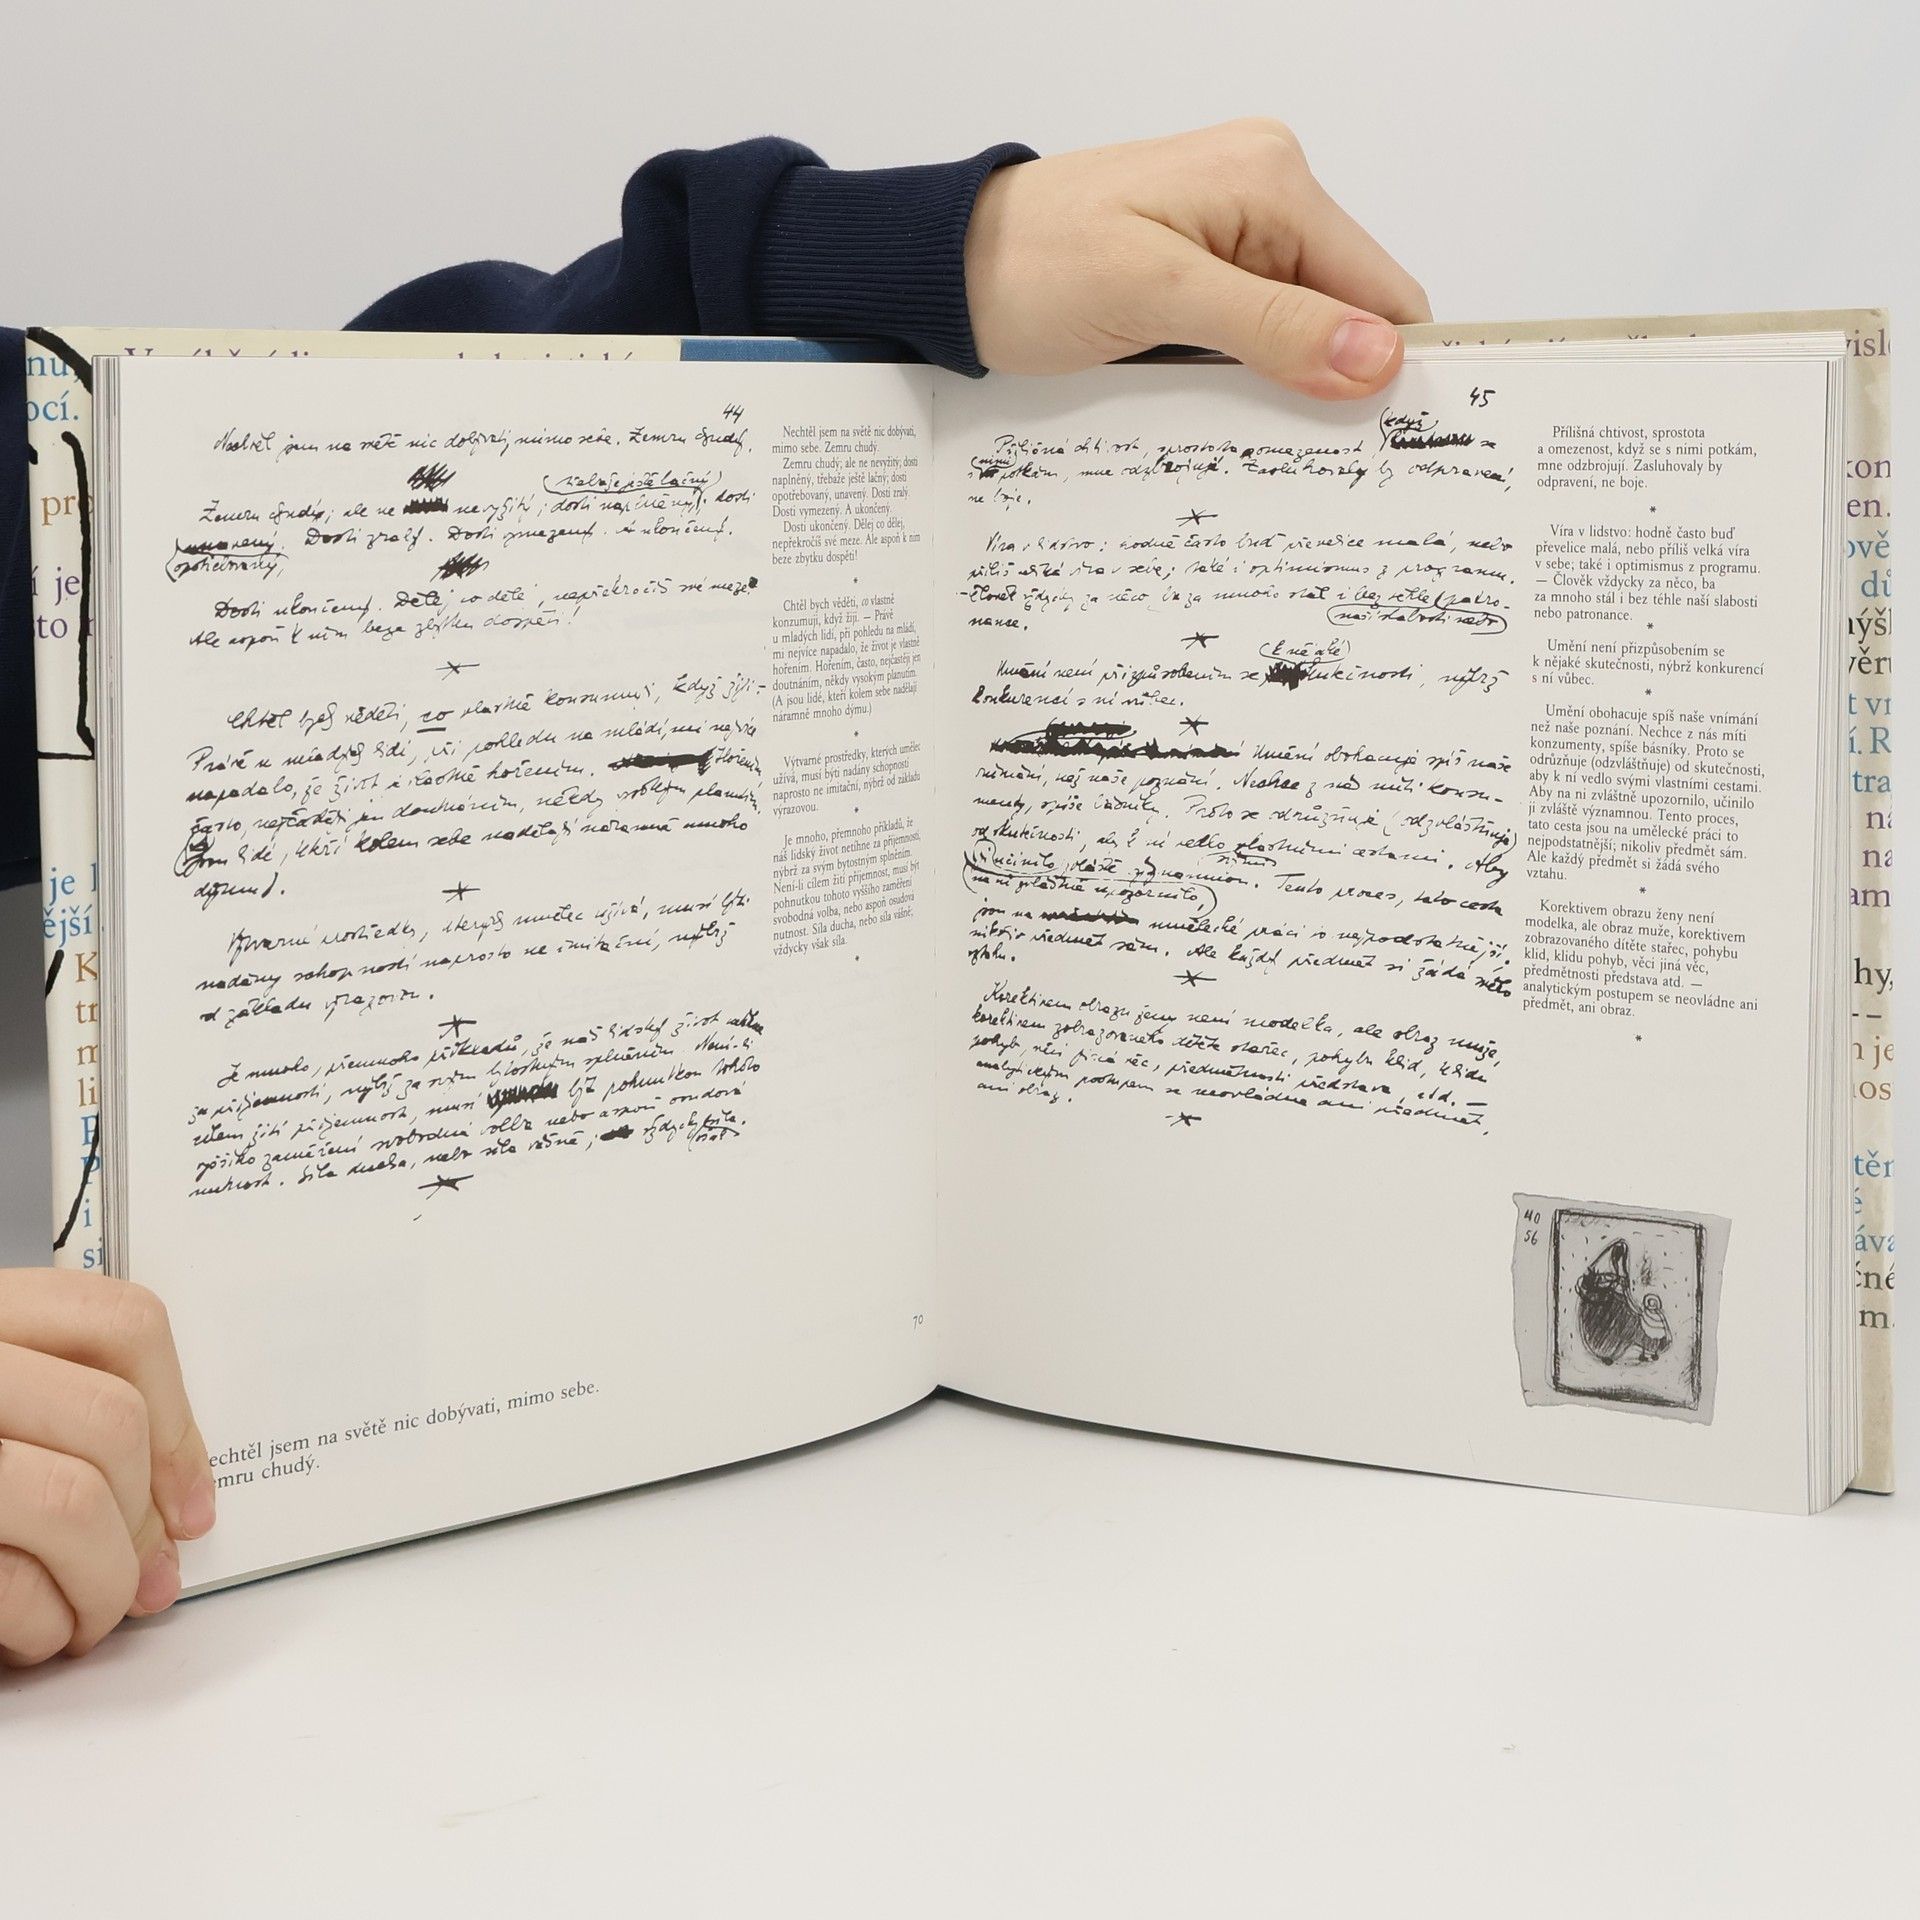 44
Nechtěl jsem na světě nic dobývati, mimo sebe. Zemru chudý.
(třebaže ještě lačný)
Zemru chudý; ale ne nevyžitý; dosti naplněný; dosti
unavený. Dosti zralý. Dosti vymezený. A ukončený.
opotřebovaný,
Dosti ukončený. Dělej co děle, nepřekročíš své meze.
Ale aspoň k nim beze zbytku dospěti!
Chtěl bych věděti, co vlastně konsumuji, když žiji. —
Právě u mladých lidí, při pohledu na mládí, mi nejvíce
napadalo, že život je vlastně hořením. Hořením,
často, nejčastěji jen doutnáním, někdy vysokým planutím.
jsou lidé, kteří kolem sebe nadělají náramně mnoho
dýmu).
Výtvarné prostředky, kterých umělec užívá, musí býti
nadány schopností naprosto ne imitační, nýbrž
od základu výrazovou.
Je mnoho, přemnoho příkladů, že náš lidský život netíhne
za příjemností, nýbrž za svým bytostným splněním. Není-li
cílem žití příjemnost, musí být pohnutkou tohoto
vyššího zaměření svobodná volba nebo aspoň osudová
nutnost. Síla ducha, nebo síla vášně; vždycky síla.
Nechtěl jsem na světě nic dobývati,
mimo sebe. Zemru chudý.
Zemru chudý; ale ne nevyžitý; dosti
naplněný, třebaže ještě lačný; dosti
opotřebovaný, unavený. Dosti zralý.
Dosti vymezený. A ukončený.
Dosti ukončený. Dělej co dělej,
nepřekročíš své meze. Ale aspoň k nim
beze zbytku dospěti!
*
Chtěl bych věděti, co vlastně
konzumuji, když žiji. — Právě
u mladých lidí, při pohledu na mládí,
mi nejvíce napadalo, že život je vlastně
hořením. Hořením, často, nejčastěji jen
doutnáním, někdy vysokým planutím.
(A jsou lidé, kteří kolem sebe nadělají
náramně mnoho dýmu.)
*
Výtvarné prostředky, kterých umělec
užívá, musí býti nadány schopností
naprosto ne imitační, nýbrž od základu
výrazovou.
*
Je mnoho, přemnoho příkladů, že
náš lidský život netíhne za příjemností,
nýbrž za svým bytostným splněním.
Není-li cílem žití příjemnost, musí být
pohnutkou tohoto vyššího zaměření
svobodná volba, nebo aspoň osudová
nutnost. Síla ducha, nebo síla vášně;
vždycky však síla.
*
70
echtěl jsem na světě nic dobývati, mimo sebe.
emru chudý.
45
když
Přílišná chtivost, sprostota a omezenost, se
s nimi potkám, mne odzbrojují. Zasluhovaly by odpravení,
ne boje.
Víra v lidstvo: hodně často buď převelice malá, nebo
příliš velká víra v sebe; také i optimismus z programu.
— Člověk vždycky za něco, ba za mnoho stál i bez téhle (patro-
nance. naší slabosti nebo)
(k nějaké)
Umění není přizpůsobením se skutečnosti, nýbrž
konkurencí s ní vůbec.
Umění obohacuje spíš naše
vnímání, než naše poznání. Nechce z nás míti konsu-
menty, spíše básníky. Proto se odrůzňuje (odzvláštňuje)
od skutečnosti, aby k ní vedlo vlastními cestami. Aby
svými
ji učinilo zvláště významnou. Tento proces, tato cesta
na ni zvláštně upozornilo,
jsou na umělecké práci to nejpodstatnější,
nikoliv předmět sám. Ale každý předmět si žádá svého
vztahu.
Korektivem obrazu ženy není modelka, ale obraz muže,
korektivem zobrazovaného dítěte stařec, pohybu klid, klidu
pohyb, věci jiná věc, předmětnosti představa, atd. —
analytickým postupem se neovládne ani předmět,
ani obraz.
Přílišná chtivost, sprostota
a omezenost, když se s nimi potkám,
mne odzbrojují. Zasluhovaly by
odpravení, ne boje.
*
Víra v lidstvo: hodně často buď
převelice malá, nebo příliš velká víra
v sebe; také i optimismus z programu.
— Člověk vždycky za něco, ba
za mnoho stál i bez téhle naší slabosti
nebo patronance.
*
Umění není přizpůsobením se
k nějaké skutečnosti, nýbrž konkurencí
s ní vůbec.
*
Umění obohacuje spíš naše vnímání
než naše poznání. Nechce z nás míti
konzumenty, spíše básníky. Proto se
odrůzňuje (odzvláštňuje) od skutečnosti,
aby k ní vedlo svými vlastními cestami.
Aby na ni zvláštně upozornilo, učinilo
ji zvláště významnou. Tento proces,
tato cesta jsou na umělecké práci to
nejpodstatnější; nikoliv předmět sám.
Ale každý předmět si žádá svého
vztahu.
*
Korektivem obrazu ženy není
modelka, ale obraz muže, korektivem
zobrazovaného dítěte stařec, pohybu
klid, klidu pohyb, věci jiná věc,
předmětnosti představa atd. —
analytickým postupem se neovládne ani
předmět, ani obraz.
*
40
56